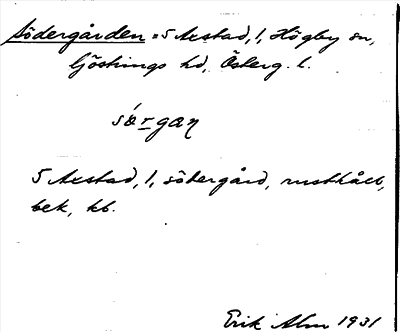 Södergården = 5 Axstad, 1, Högby sn,
Göstrings hd, Österg. l.
sǿrgaŋ
5 Axstad, 1, södergård, rusthåll,
bek, kb.
Erik Alm 1931